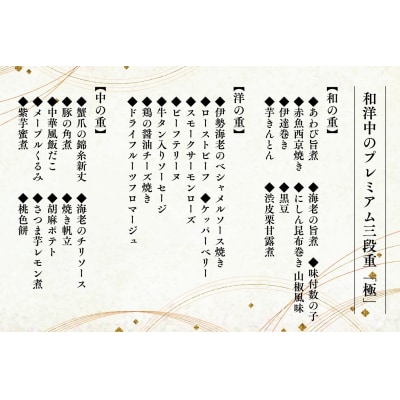 和洋中のプレミアム三段重「極」
【和の重】
◆あわび旨煮 ◆海老の旨煮 ◆味付数の子
◆赤魚西京焼き ◆にしん昆布巻き 山椒風味
◆伊達巻き ◆黒豆
◆芋きんとん ◆渋皮栗甘露煮
【洋の重】
◆伊勢海老のベシャメルソース焼き
◆ローストビーフ ◆ケッパーベリー
◆スモークサーモンローズ
◆ビーフテリーヌ
◆牛タン入りソーセージ
◆鶏の醤油チーズ焼き
◆ドライフルーツフロマージュ
【中の重】
◆蟹爪の錦糸新丈 ◆海老のチリソース
◆豚の角煮 ◆焼き帆立
◆中華風飯だこ ◆胡麻ポテト
◆メープルくるみ ◆さつま芋レモン煮
◆紫芋蜜煮 ◆桃色餅